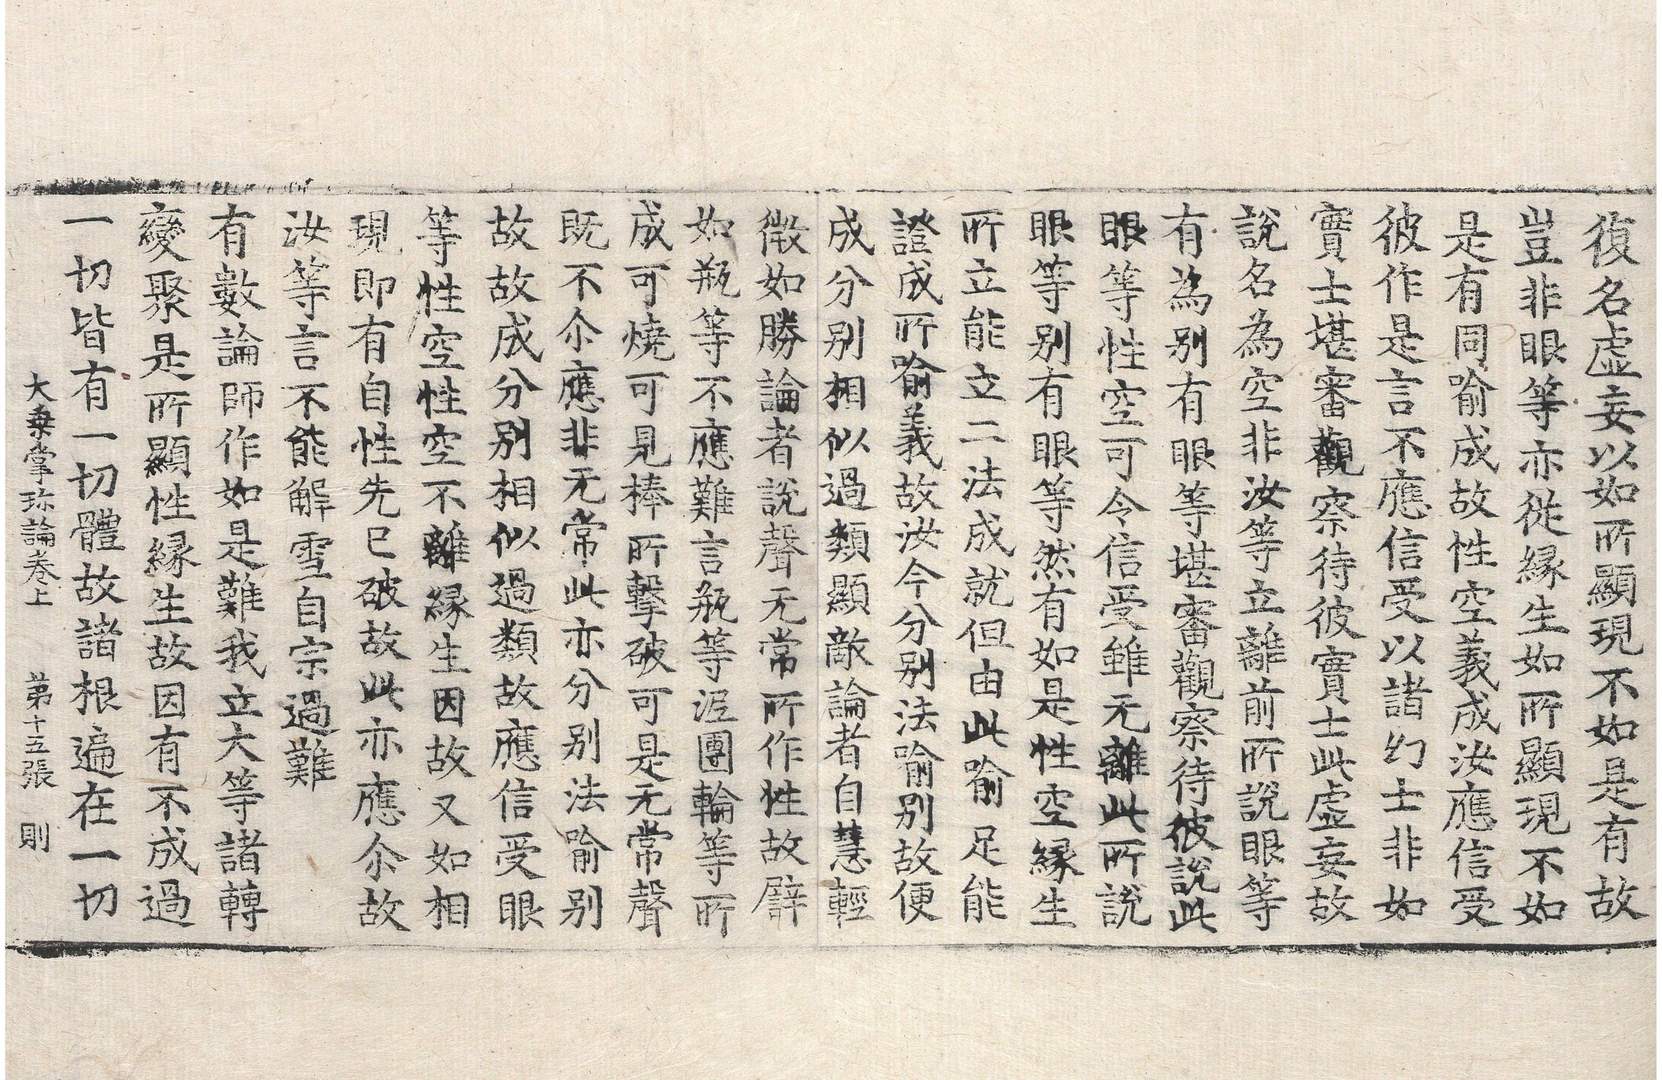 復名虛妄以如所顯現不如是有故
豈非眼等亦從緣生如所顯現不如
是有同喻成故性空義成汝應信受
彼作是言不應信受以諸幻士非如
實士堪審觀察待彼實士此虛妄故
說名為空非汝等立離前所說眼等
有為別有眼等堪審觀察待彼說此
眼等性空可令信受雖无離此所說
眼等別有眼等然有如是性空緣生
所立能立二法成就但由此喻足能
證成所喻義故汝今分別法喻別故便
成分別相似過類顯敵論者自慧輕
微如勝論者說聲无常所作性故譬
如瓶等不應難言瓶等泥團輪等所
成可燒可見棒所擊破可是无常聲
既不尒應非无常此亦分別法喻別
故故成分別相似過類故應信受眼
等性空性空不離緣生因故又如相
現即有自性先已破故此亦應尒故
汝等言不能解雪自宗過難
有數論師作如是難我立大等諸轉
變聚是所顯性緣生故因有不成過
一切皆有一切體故諸根遍在一切
大乗掌珎論卷上 苐十五張 則